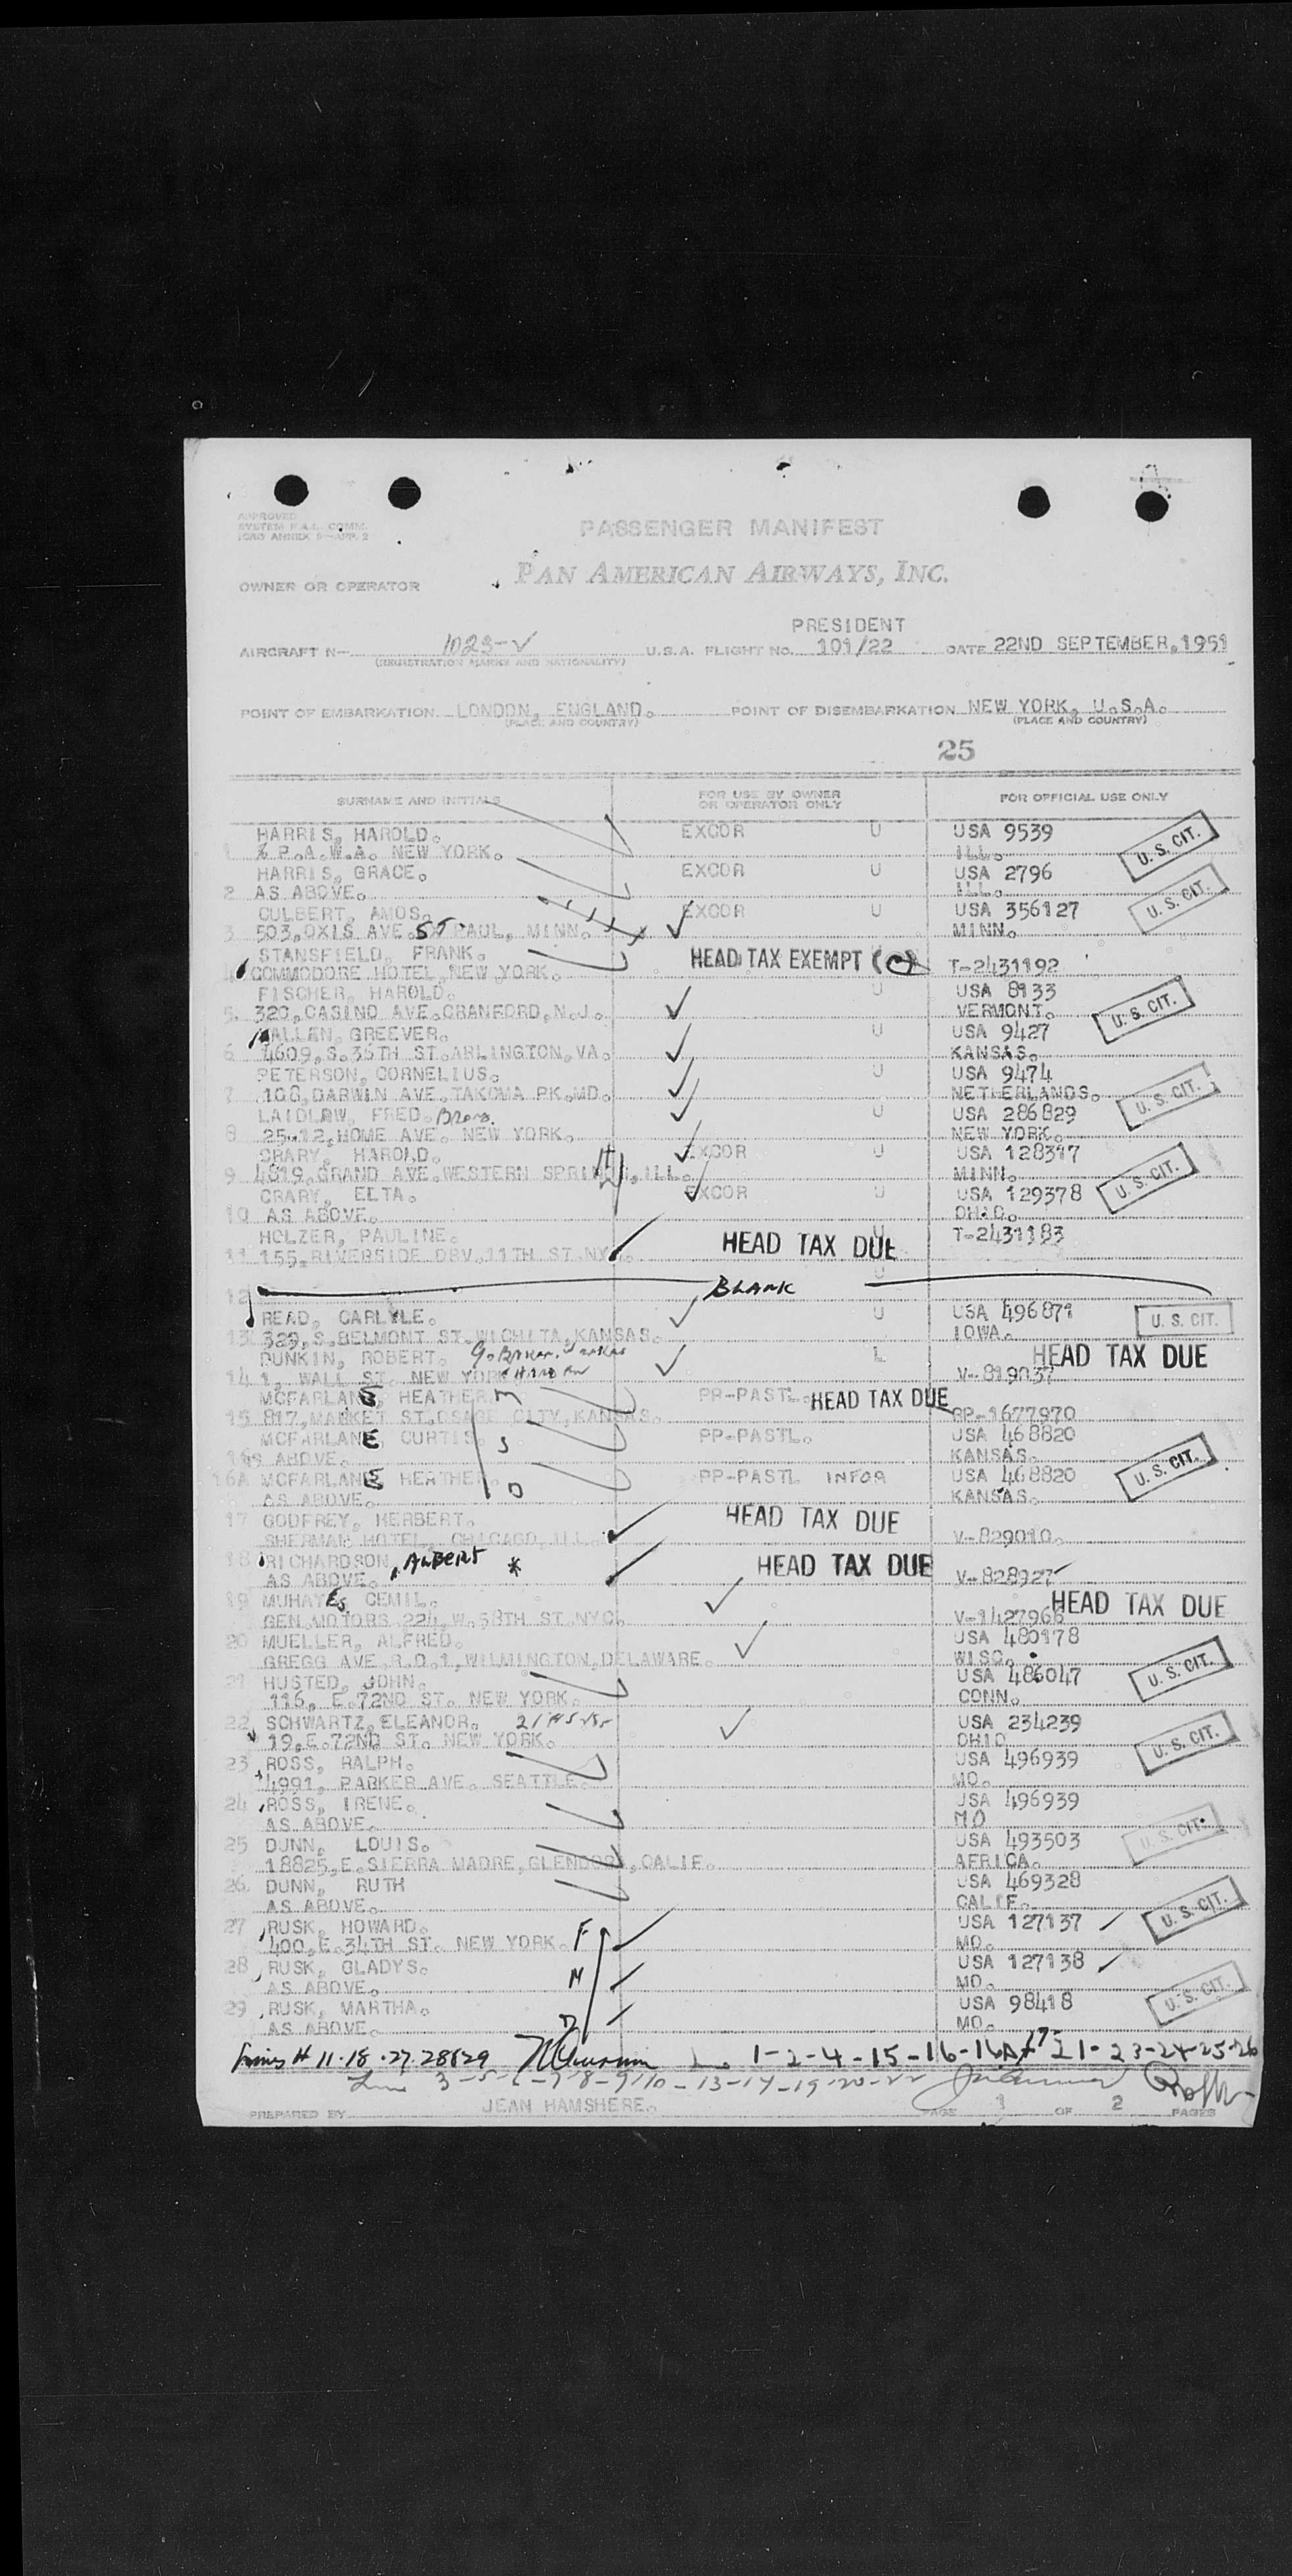 APPROVED
SYSTEM P.A.L. COMM.
ICAO ANNEX 9—APP. 2
PASSENGER MANIFEST
OWNER OR OPERATOR PAN AMERICAN AIRWAYS, INC.
PRESIDENT
AIRCRAFT N— 1023-V U.S.A. FLIGHT NO. 101/22 DATE 22ND SEPTEMBER, 1951
(REGISTRATION MARKS AND NATIONALITY)
POINT OF EMBARKATION LONDON, ENGLAND. POINT OF DISEMBARKATION NEW YORK, U.S.A.
(PLACE AND COUNTRY) (PLACE AND COUNTRY)
25
SURNAME AND INITIALS FOR USE BY OWNER OR OPERATOR ONLY FOR OFFICIAL USE ONLY
HARRIS, HAROLD. EXCOR U USA 9539 U. S. CIT.
1 % P.A.W.A. NEW YORK. ILL.
HARRIS, GRACE. EXCOR U USA 2796
2 AS ABOVE. ILL. U. S. CIT.
CULBERT, AMOS. EXCOR U USA 356127
3 503, OXIS AVE. ST PAUL, MINN. MINN.
STANSFIELD, FRANK. HEAD TAX EXEMPT (C)
4 COMMODORE HOTEL, NEW YORK. T-2431192
FISCHER, HAROLD. U USA 8133
5 320, CASINO AVE. CRANFORD, N.J. VERMONT. U. S. CIT.
ALLEN, GREEVER. U USA 9427
6 4609, S. 36TH ST. ARLINGTON, VA. KANSAS.
PETERSON, CORNELIUS. U USA 9474
7 108, DARWIN AVE. TAKOMA PK. MD. NETHERLANDS. U. S. CIT.
LAIDLAW, FRED. U USA 286829
8 25-12, HOME AVE. NEW YORK. NEW YORK.
CRARY, HAROLD. EXCOR U USA 128317
9 4819, GRAND AVE. WESTERN SPRINGS, ILL. MINN. U. S. CIT.
CRARY, ELTA. EXCOR U USA 129378
10 AS ABOVE. OHIO.
HOLZER, PAULINE. HEAD TAX DUE U T-2431183
11 155, RIVERSIDE DRV. 11TH ST. NYC.
12 BLANK U
READ, CARLYLE. U USA 496871 U. S. CIT.
13 329, S. BELMONT ST. WICHITA, KANSAS. IOWA.
DUNKIN, ROBERT. L HEAD TAX DUE
14 1, WALL ST. NEW YORK V-819037
MCFARLANE, HEATHER M PP-PASTL. HEAD TAX DUE
15 817, MARKET ST. OSAGE CITY, KANSAS. RP-1677970
MCFARLANE, CURTIS. S PP-PASTL. USA 468820
16 AS ABOVE. KANSAS.
16A MCFARLANE HEATHER. D PP-PASTL INFOA USA 468820 U. S. CIT.
AS ABOVE. KANSAS.
17 GODFREY, HERBERT. HEAD TAX DUE
SHERMAN HOTEL, CHICAGO, ILL. V-829010.
18 RICHARDSON, ALBERT * HEAD TAX DUE
AS ABOVE. V-828927
19 MUHAYES, CEMIL. HEAD TAX DUE
GEN. MOTORS 224, W. 58TH ST. NYC. V-1427966
20 MUELLER, ALFRED. USA 480178
GREGG AVE. R.D.1, WILMINGTON, DELAWARE. WISC.
21 HUSTED, JOHN. USA 486047 U. S. CIT.
116, E. 72ND ST. NEW YORK. CONN.
22 SCHWARTZ, ELEANOR. USA 234239
19, E. 72ND ST. NEW YORK. OHIO U. S. CIT.
23 ROSS, RALPH. USA 496939
4991, PARKER AVE. SEATTLE. MO.
24 ROSS, IRENE. USA 496939
AS ABOVE. MO
25 DUNN, LOUIS. USA 493503 U. S. CIT.
18825, E. SIERRA MADRE, GLENDORA, CALIF. AFRICA.
26 DUNN, RUTH USA 469328
AS ABOVE. CALIF.
27 RUSK, HOWARD. F USA 127137 U. S. CIT.
400, E. 34TH ST. NEW YORK. MO.
28 RUSK, GLADYS. M USA 127138
AS ABOVE. MO.
29 RUSK, MARTHA. D USA 98418 U. S. CIT.
AS ABOVE. MO.
Lines # 11-18-27-28&29 L. 1-2-4-15-16-16A-17-21-23-24-25-26
Line 3-5-6-7-8-9-10-13-14-19-20-22
PREPARED BY JEAN HAMSHERE. PAGE 1 OF 2 PAGES